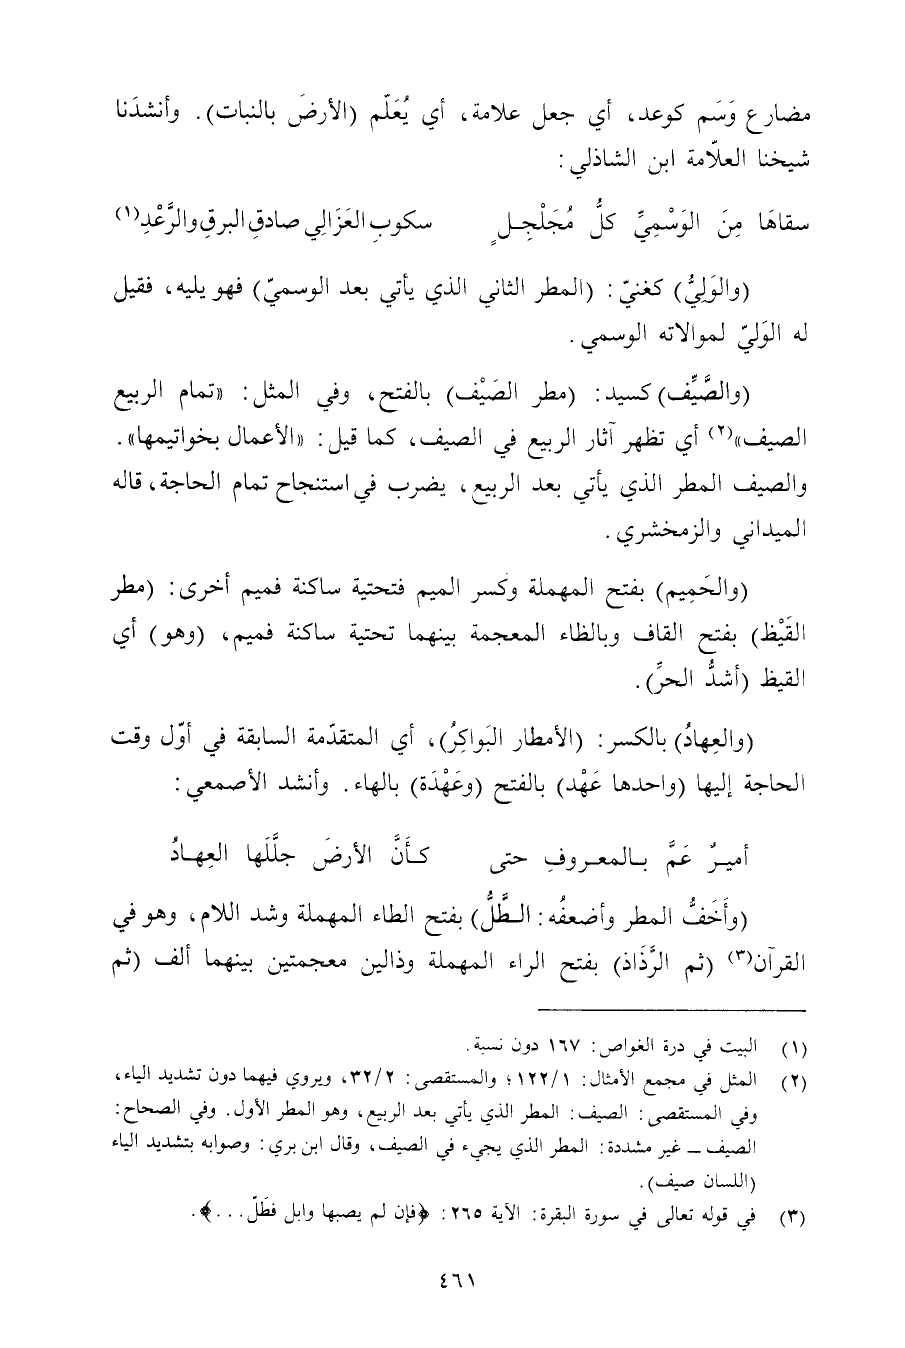 مضارع وَسَم كوعد، أي جعل علامة، أي يُعَلّم (الأرضَ بالنبات). وأنشدَنا
شيخنا العلّامة ابن الشاذلي:
سقاهَا مِنَ الوَسْمِيِّ كلُّ مُجَلْجِلٍ سكوبِ العَزَالِي صادقِ البرقِ والرَّعْدِ(١)
(والوَلِيُّ) كغنيّ: (المطر الثاني الذي يأتي بعد الوسميّ) فهو يليه، فقيل
له الوَليّ لموالاته الوسمي.
(والصَّيِّف) كسيد: (مطر الصَيْف) بالفتح، وفي المثل: «تمام الربيع
الصيف»(٢) أي تظهر آثار الربيع في الصيف، كما قيل: «الأعمال بخواتيمها».
والصيف المطر الذي يأتي بعد الربيع، يضرب في استنجاح تمام الحاجة، قاله
الميداني والزمخشري.
(والحَمِيم) بفتح المهملة وكسر الميم فتحتية ساكنة فميم أخرى: (مطر
القَيْظ) بفتح القاف وبالظاء المعجمة بينهما تحتية ساكنة فميم، (وهو) أي
القيظ (أشدُّ الحرِّ).
(والعِهادُ) بالكسر: (الأمطار البَواكِرُ)، أي المتقدّمة السابقة في أوّل وقت
الحاجة إليها (واحدها عَهْد) بالفتح (وعَهْدَة) بالهاء. وأنشد الأصمعي:
أميـرٌ عَمَّ بـالمعـروفِ حتى كـأَنَّ الأرضَ جلَّلَها العِهـادُ
(وأَخَفُّ المطر وأضعفُه: الطَّلُّ) بفتح الطاء المهملة وشد اللام، وهو في
القرآن(٣) (ثم الرَّذَاذ) بفتح الراء المهملة وذالين معجمتين بينهما ألف (ثم
(١) البيت في درة الغواص: ١٦٧ دون نسبة.
(٢) المثل في مجمع الأمثال: ١/١٢٢؛ والمستقصى: ٣٢/٢، ويروي فيهما دون تشديد الياء،
وفي المستقصى: الصيف: المطر الذي يأتي بعد الربيع، وهو المطر الأول. وفي الصحاح:
الصيف ــ غير مشددة: المطر الذي يجيء في الصيف، وقال ابن بري: وصوابه بتشديد الياء
(اللسان صيف).
(٣) في قوله تعالى في سورة البقرة: الآية ٢٦٥: ﴿فإن لم يصبها وابل فطَلّ...﴾.
٤٦١